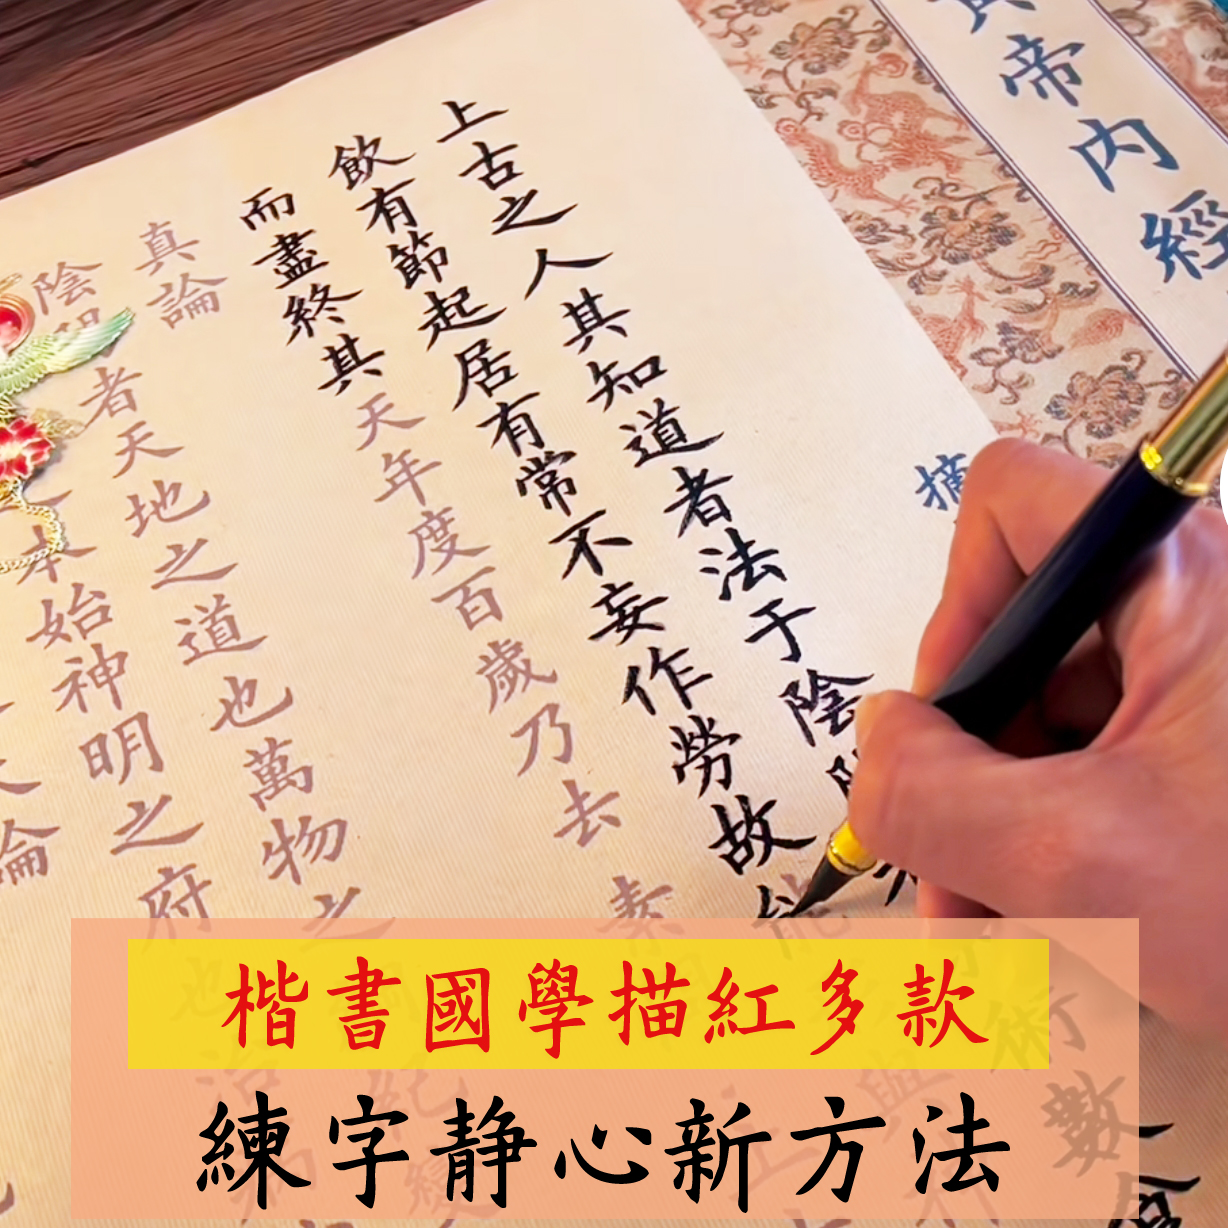 帝内經
摘
上古之人其知道者法于陰
術數
飲有節起居有常不妄作勞故能
而盡終其天年度百歲乃去 素
真論
陰陽者天地之道也萬物之
本始神明之府
論
楷書國學描紅多款
練字静心新方法